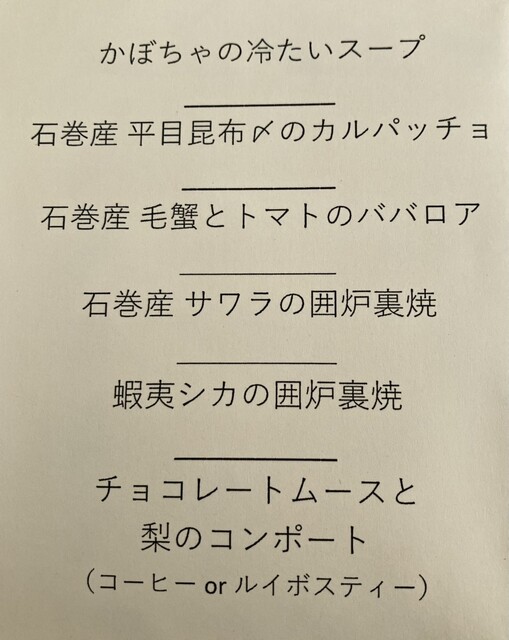 かぼちゃの冷たいスープ
石巻産 平目昆布〆のカルパッチョ
石巻産 毛蟹とトマトのババロア
石巻産 サワラの囲炉裏焼
蝦夷シカの囲炉裏焼
チョコレートムースと
梨のコンポート
（コーヒー or ルイボスティー）